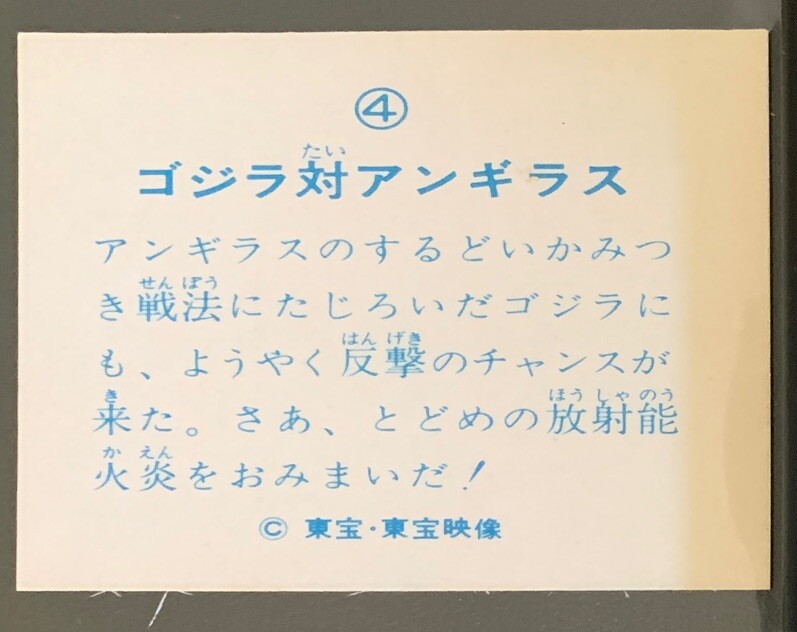 ④
たい
ゴジラ対アンギラス
アンギラスのするどいかみつ
せん ぽう
き戦法にたじろいだゴジラに
はん げき
も、ようやく反撃のチャンスが
き ほう しゃ のう
来た。さあ、とどめの放射能
か えん
火炎をおみまいだ!
© 東宝・東宝映像